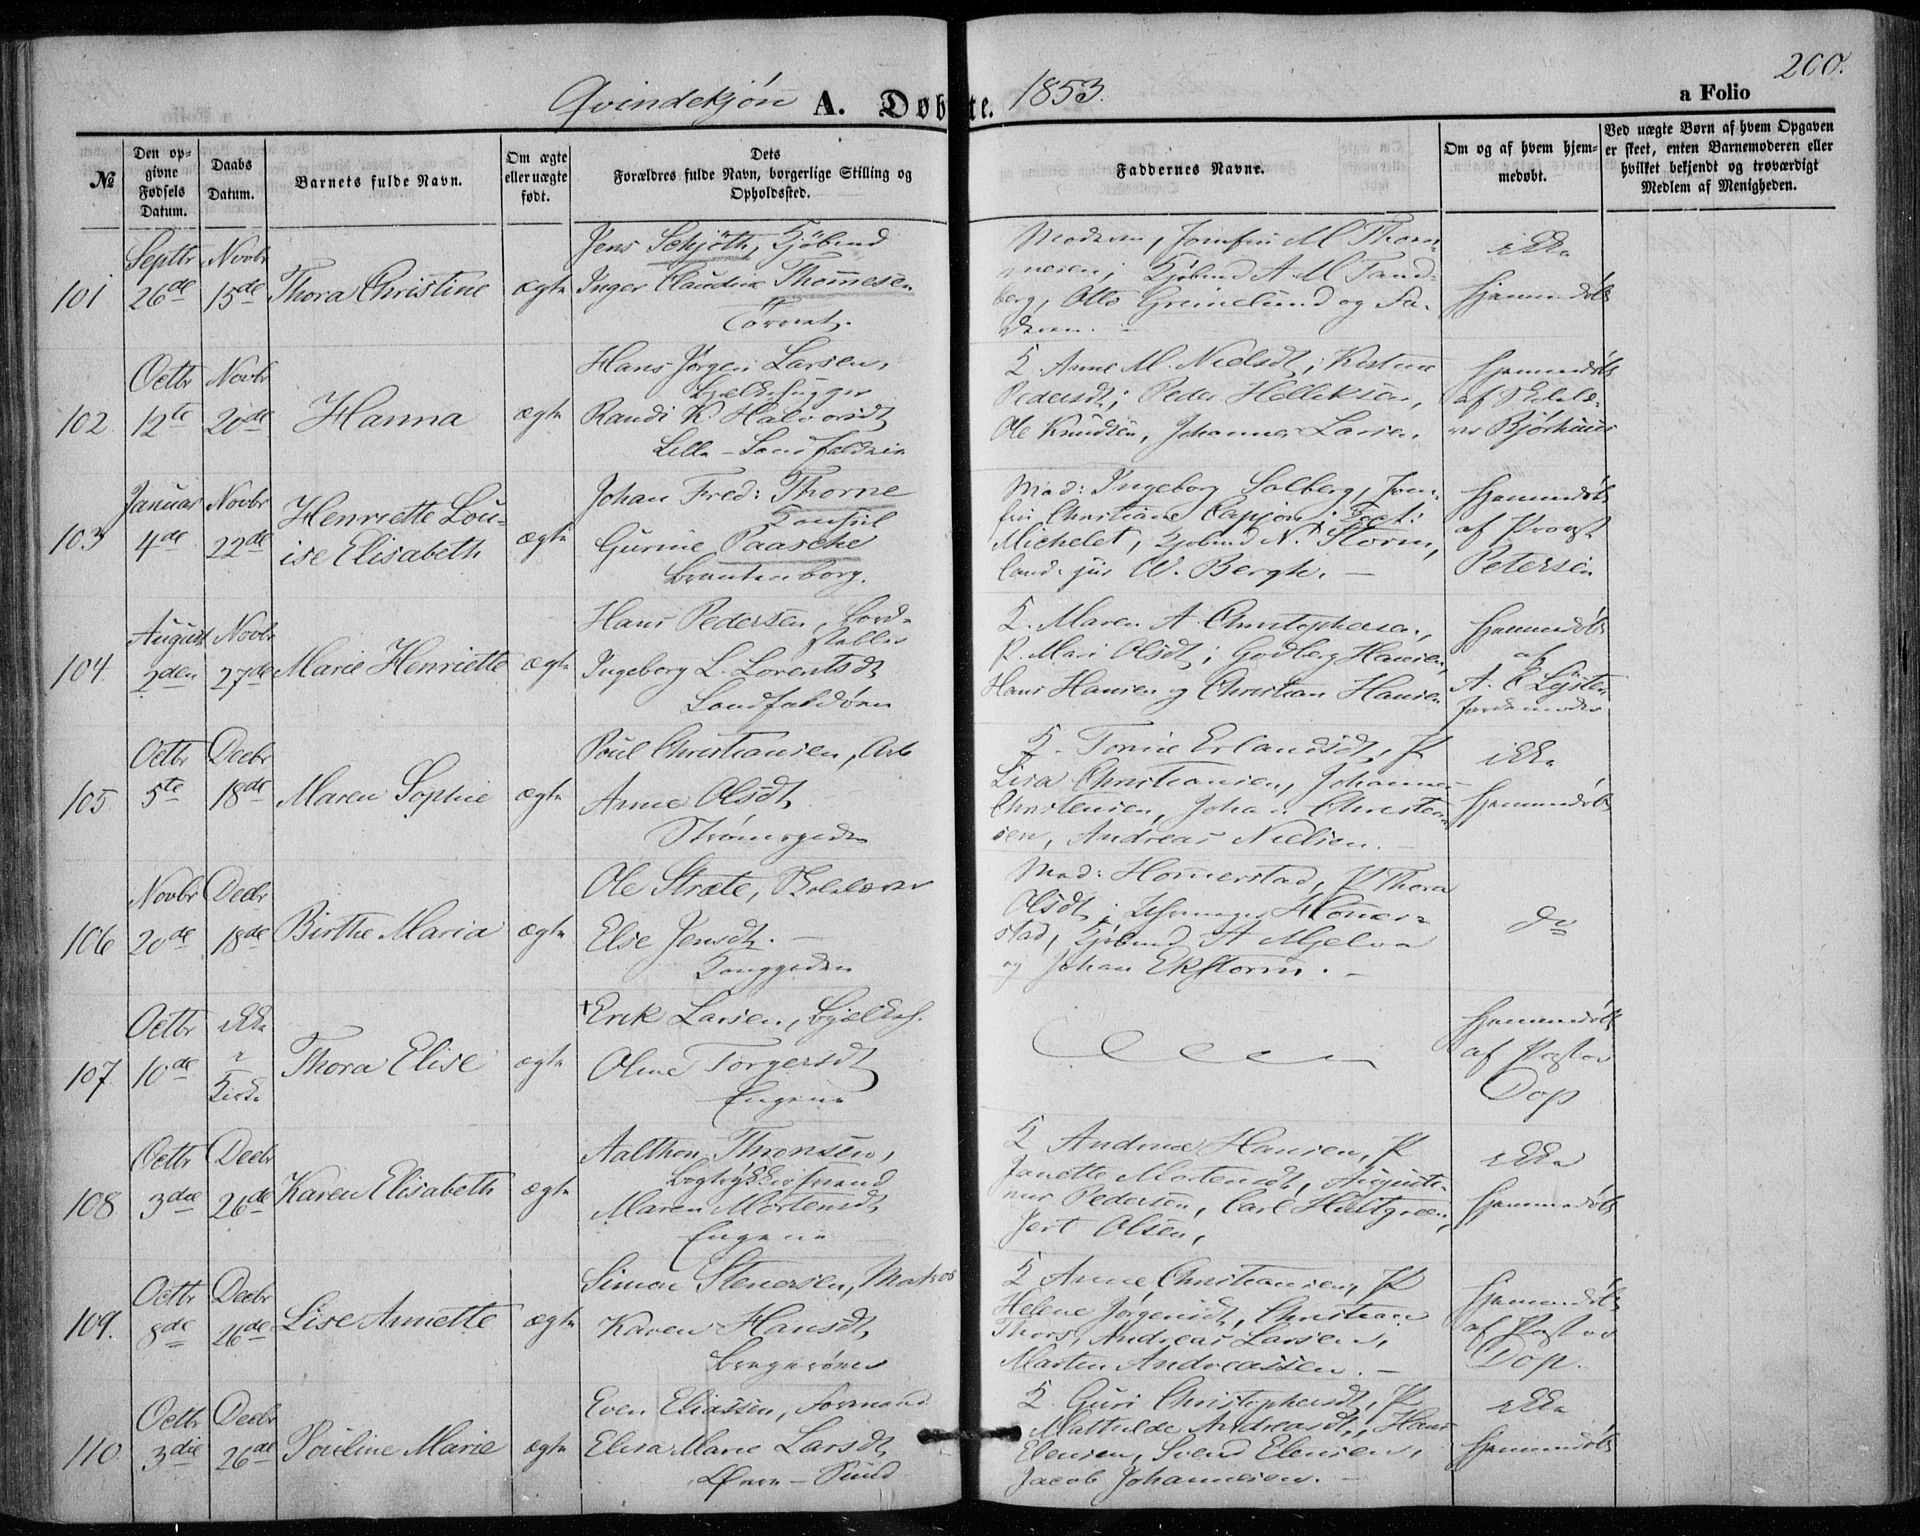 200.
Qvindekjøn A. Døbte. 1853. a Folio
№
Den opgivne Fødsels Datum.
Daabs Datum.
Barnets fulde Navn.
Om ægte eller uægte født.
Dets Forældres fulde Navn, borgerlige Stilling og Opholdssted.
Faddernes Navne.
Om og af hvem hjemmedøbt.
Ved uægte Børn af hvem Opgaven er skeet, enten Barnemoderen eller hvilket bekjendt og troværdigt Medlem af Menigheden.
101
Septbr 26de
Novbr 15de
Thora Christine
ægte
Jens Schjøth, Kjøbmd
Inger Claudine Thomesen
Torvet.
Moderen, Jomfru M Thom-
mesen; Kjøbmd A M Tand-
berg, Otto Grimelund og Fa-
deren.
ikke
hjemmedøbt
102
Octbr 12te
Novbr 20de
Hanna
ægte
Hans Jørgen Larsen,
Bjelkehugger
Randi K. Halvorsdt
Lille-Landfaldøen
K. Anne M. Nielsdt; Kistine
Pedersdt; Peder Helliksen,
Ole Knudsen, Johannes Larsen.
hjemmedøbt
af Skolelæ-
rer Bjørhuus
103
Januar 4de
Novbr 22de
Henriette Lou-
ise Elisabeth
ægte
Johan Fred: Thorne
Konsul
Gurine Paasche
Brantenborg.
Mad: Ingeborg Solberg, Jom-
fru Christiane Capjon; Foct:
Michelet, Kjøbmd N. Storm,
cand. jur W. Bergh.
hjemmedøbt
af Provst
Petersen
104
August 2den
Novbr 27de
Marie Henriette
ægte
Hans Pedersen, Bord-
stabler
Ingeborg L. Lorentsdt
Landfaldøen
K. Maren A. Christophersen,
P. Mari Olsdt; Godberg Hansen,
Hans Hansen og Christian Hansen
hjemmedøbt
af
A. E Løjsten
Jordemoder
105
Octbr 5te
Decbr 18de
Maren Sophie
ægte
Poul Christiansen, Arb
Anne Olsdt
Strømsgaden
K. Torine Erlandsdt, P
Lisa Christiansen, Johannes
Christensen, Johan Christen-
sen, Andreas Nielsen.
ikke
hjemmedøbt
106
Novbr 20de
Decbr 18de
Birthe Maria
ægte
Ole Stræte, Skolelærer
Else Jensdt.
Konggaden
Mad: Homerstad, P Thora
Olsdt; Homer-
stad, Kjøbmd A Mjelva
og Johan Ekstorm.
do
107
Octbr 10de
ikke
i
Kirke
Thora Elise
ægte
+Erik Larsen, Bjælkeh.
Oline Torgersdt
Engene
hjemmedøbt
af Pastor
Dop
108
Octbr 3die
Decbr 26de
Karen Elisabeth
ægte
Aalthon Thronsen,
Bogtrykkersvend
Maren Mortensdt
Engene
K Andrine Hansen, P
Janette Mortensdt, August-
nus Pedersen, Carl Hultgreen,
Jert Olsen,
ikke
hjemmedøbt
109.
Octbr 8de
Decbr 26de
Lise Annette
ægte
Simon Stenersen, Matros
Karen Hansdt
Bragerøen
K Anne Christiansen, P
Helene Jørgensdt, Christian
Thors, Andreas Larsen,
Marten Andreassen.
hjemmedøbt
af Pastor
Dop.
110
Octbr 3die
Decbr 26de
Pauline Marie
ægte
Even Eliassen, Formand
Elisa Marie Larsdt
Øvre-Sund
K. Guri Christophersdt, P
Mathilde Andreasdt, Hans
Elensen, Svend Elensen,
Jacob Johannesen.
ikke
hjemmedøbt